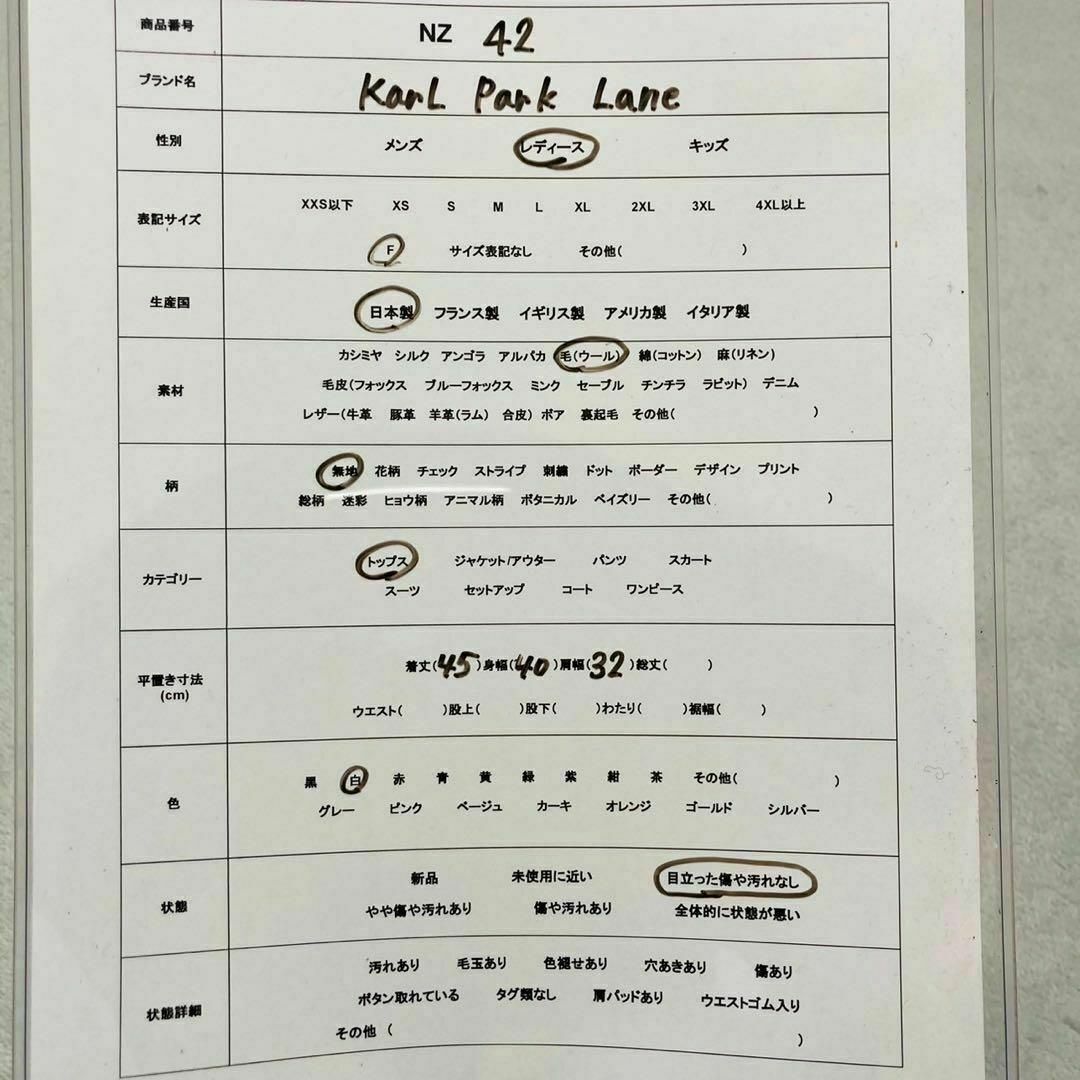 商品番号 NZ 42
ブランド名 Karl Park Lane
性別 メンズ レディース キッズ
表記サイズ XXS以下 XS S M L XL 2XL 3XL 4XL以上
F サイズ表記なし その他( )
生産国 日本製 フランス製 イギリス製 アメリカ製 イタリア製
素材 カシミヤ シルク アンゴラ アルパカ 毛(ウール) 綿(コットン) 麻(リネン)
毛皮(フォックス ブルーフォックス ミンク セーブル チンチラ ラビット) デニム
レザー(牛革 豚革 羊革(ラム) 合皮) ボア 裏起毛 その他( )
柄 無地 花柄 チェック ストライプ 刺繍 ドット ボーダー デザイン プリント
総柄 迷彩 ヒョウ柄 アニマル柄 ボタニカル ペイズリー その他( )
カテゴリー トップス ジャケット/アウター パンツ スカート
スーツ セットアップ コート ワンピース
平置き寸法 着丈(45)身幅(40)肩幅(32)総丈( )
(cm)
ウエスト( )股上( )股下( )わたり( )裾幅( )
色 黒 白 赤 青 黄 緑 紫 紺 茶 その他( )
グレー ピンク ベージュ カーキ オレンジ ゴールド シルバー
状態 新品 未使用に近い 目立った傷や汚れなし
やや傷や汚れあり 傷や汚れあり 全体的に状態が悪い
状態詳細 汚れあり 毛玉あり 色褪せあり 穴あきあり 傷あり
ボタン取れている タグ類なし 肩パッドあり ウエストゴム入り
その他 ( )